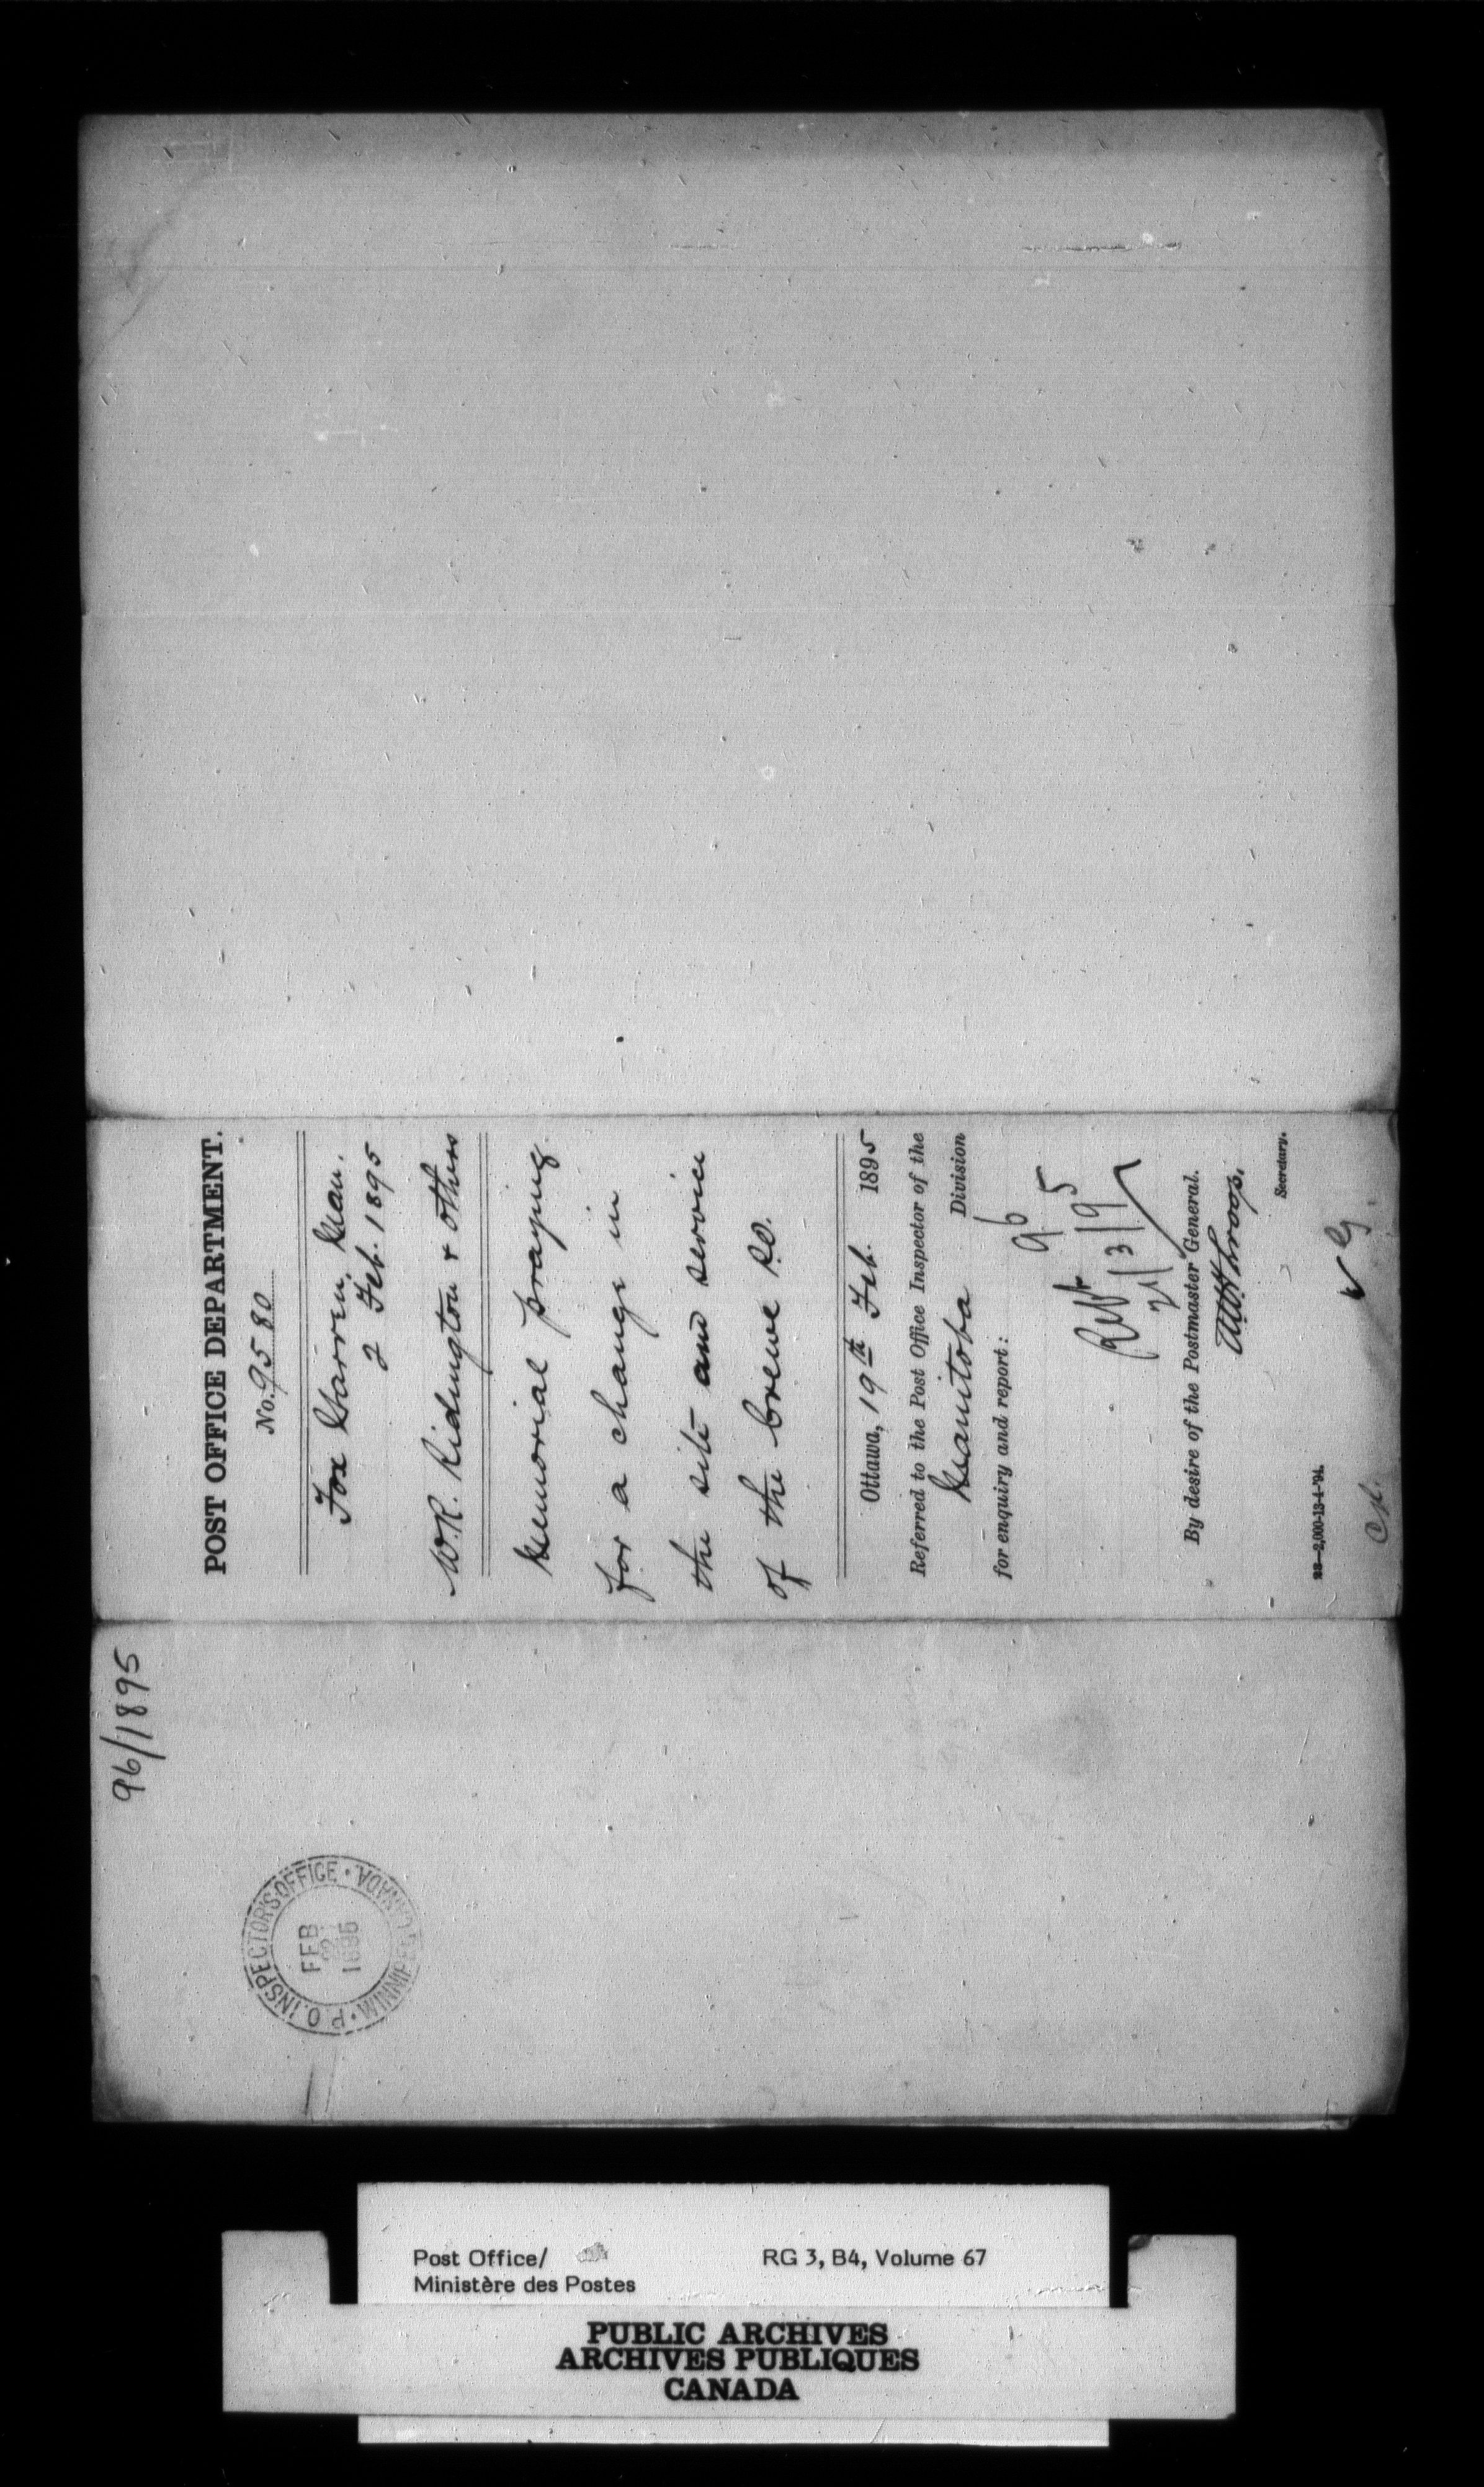 96/1895
P.O. INSPECTOR'S OFFICE · WINNIPEG, CANADA.
FEB
1895
POST OFFICE DEPARTMENT.
No. 9580
Fox Warren, Man.
2 Feb. 1895
W.R. Ridington & others
Memorial praying
for a change in
the site and service
of the P.O.
Ottawa, 19th Feb. 1895
Referred to the Post Office Inspector of the
Manitoba Division
for enquiry and report:
96
95
Rept
21/3/95
By desire of the Postmaster General.
Secretary.
28—2,000-13-4-'94.
Post Office/
Ministère des Postes
RG 3, B4, Volume 67
PUBLIC ARCHIVES
ARCHIVES PUBLIQUES
CANADA